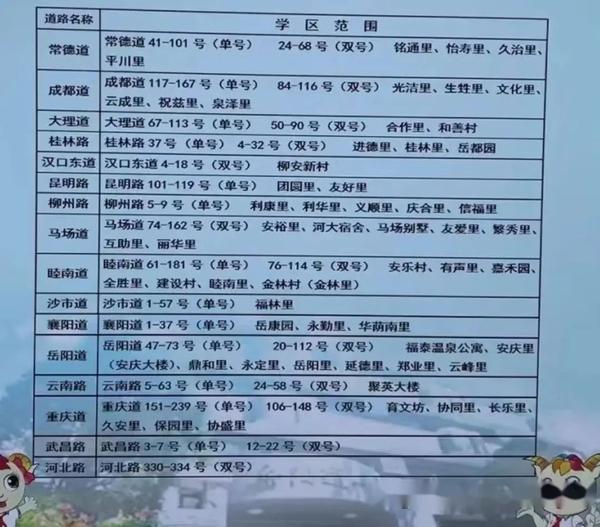 道路名称 学区范围
常德道 常德道 41-101 号（单号） 24-68 号（双号） 铭通里、怡寿里、久治里、
平川里
成都道 成都道 117-167 号（单号） 84-116 号（双号） 光洁里、生甡里、文化里、
云成里、祝兹里、泉泽里
大理道 大理道 67-113 号（单号） 50-90 号（双号） 合作里、和善村
桂林路 桂林路 37 号（单号） 4-32 号（双号） 进德里、桂林里、岳都园
汉口东道 汉口东道 4-18 号（双号） 柳安新村
昆明路 昆明路 101-119 号（单号） 团圆里、友好里
柳州路 柳州路 5-9 号（单号） 利康里、利华里、义顺里、庆合里、信福里
马场道 马场道 74-162 号（双号） 安裕里、河大宿舍、马场别墅、友爱里、繁秀里、
互助里、丽华里
睦南道 睦南道 61-181 号（单号） 76-114 号（双号） 安乐村、有声里、嘉禾园、
全胜里、建设村、睦南里、金林村（金林里）
沙市道 沙市道 1-57 号（单号） 福林里
襄阳道 襄阳道 1-37 号（单号） 岳康园、永勤里、华荫南里
岳阳道 岳阳道 47-73 号（单号） 20-112 号（双号） 福泰温泉公寓、安庆里
（安庆大楼）、鼎和里、永定里、岳阳里、延德里、郑业里、云峰里
云南路 云南路 5-63 号（单号） 24-58 号（双号） 聚英大楼
重庆道 重庆道 151-239 号（单号） 106-148 号（双号） 育文坊、协同里、长乐里、
久安里、保园里、协盛里
武昌路 武昌路 3-7 号（单号） 12-22 号（双号）
河北路 河北路 330-334 号（双号）